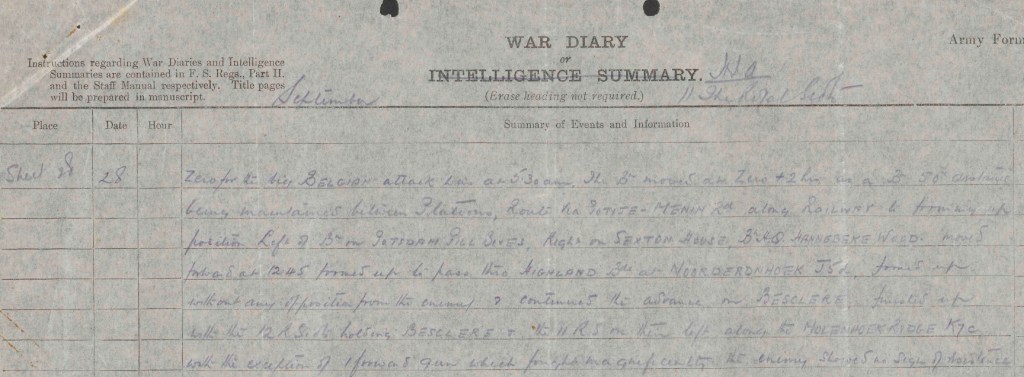 WAR DIARY
or
INTELLIGENCE SUMMARY.
(Erase heading not required.)
Army Form
Instructions regarding War Diaries and Intelligence
Summaries are contained in F. S. Regs., Part II.
and the Staff Manual respectively. Title pages
will be prepared in manuscript.
September
11 The Royal Scots
Place Date Hour Summary of Events and Information
28 Zero for the big BELGIAN attack was at 5.30am. The Bn moved at Zero + 2 hrs in a 50x distance
being maintained between Platoons, Route via POTITE-MENIN Rd along RAILWAY to forming up
position Left of Bn on POTSDAM PILL BOXES, Right on SEXTON HOUSE, BHQ HANNEBEKE WOOD. moved
forward at 1245 formed up to pass thro HIGHLAND Bde at NOORDERDHOEK J5d. formed up
without any opposition from the enemy & continued the advance on BESCLERE finished up
with the 12 R Scots holding BESCLERE & the 11 R.S on the left along the MOLENHOEK RIDGE K7c
with the exception of 1 forward gun which fought magnificently the enemy showed no sign of resistance